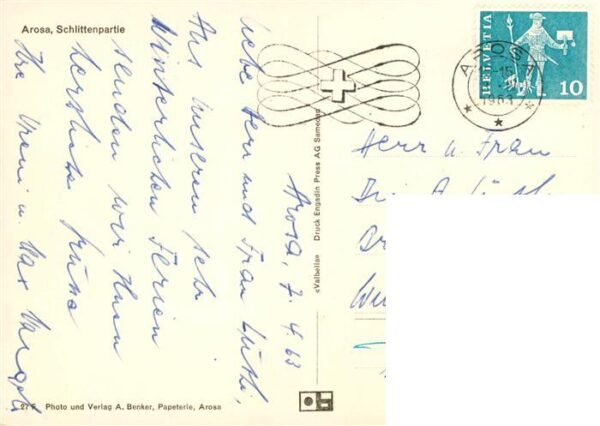 Arosa, Schlittenpartie
Arosa, 7. 4. 63
Liebe Herr und Frau Lüthi,
Aus unseren sehr
winterlichen Ferien
senden wir Ihnen
herzliche Grüsse
Ihre Vreni u. Max
Herr u. Frau
HELVETIA
10
AROSA
1963
«Valbella» Druck Engadin Press AG Samedan
27 F Photo und Verlag A. Benker, Papeterie, Arosa